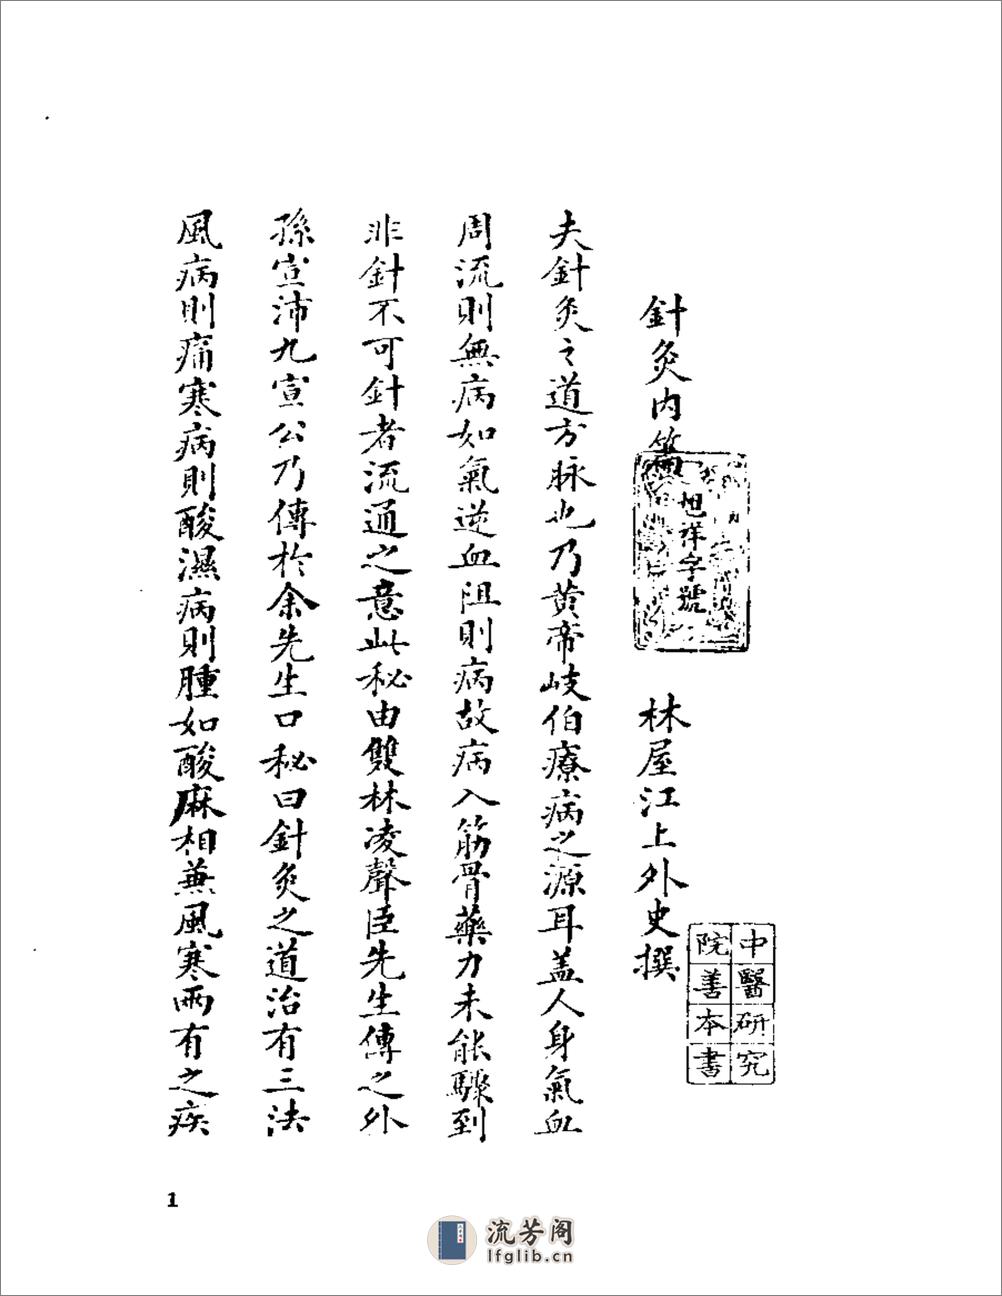 針灸内篇
旭祥字號
林屋江上外史撰
中醫研究
院善本書
夫針灸之道方脉也乃黄帝岐伯療病之源耳盖人身氣血
周流則無病如氣逆血阻則病故病入筋骨藥力未能驟到
非針不可針者流通之意此秘由雙林凌聲臣先生傳之外
孫宣沛九宣公乃傳於余先生口秘曰針灸之道治有三法
風病則痛寒病則酸濕病則腫如酸麻相兼風寒兩有之疾
1
流芳阁
lfglib.cn